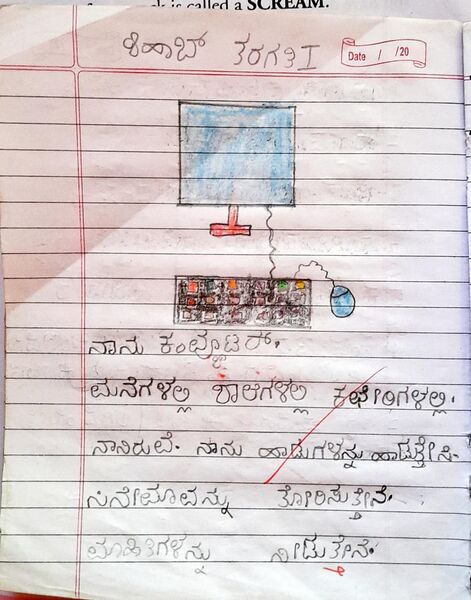 k is called a SCREAM.
ಶಿಹಾಬ್ ತರಗತಿ I
Date / /20
ನಾನು ಕಂಪ್ಯೂಟರ್.
ಮನೆಗಳಲ್ಲಿ ಶಾಲೆಗಳಲ್ಲಿ ಕಛೇರಿಗಳಲ್ಲಿ.
ನಾನಿರುವೆ. ನಾನು ಹಾಡುಗಳನ್ನು ಹಾಡುತ್ತೇನೆ.
ಸಿನೇಮಾವನ್ನು ತೋರಿಸುತ್ತೇನೆ.
ಮಾಹಿತಿಗಳನ್ನು ನೀಡುತ್ತೇನೆ.